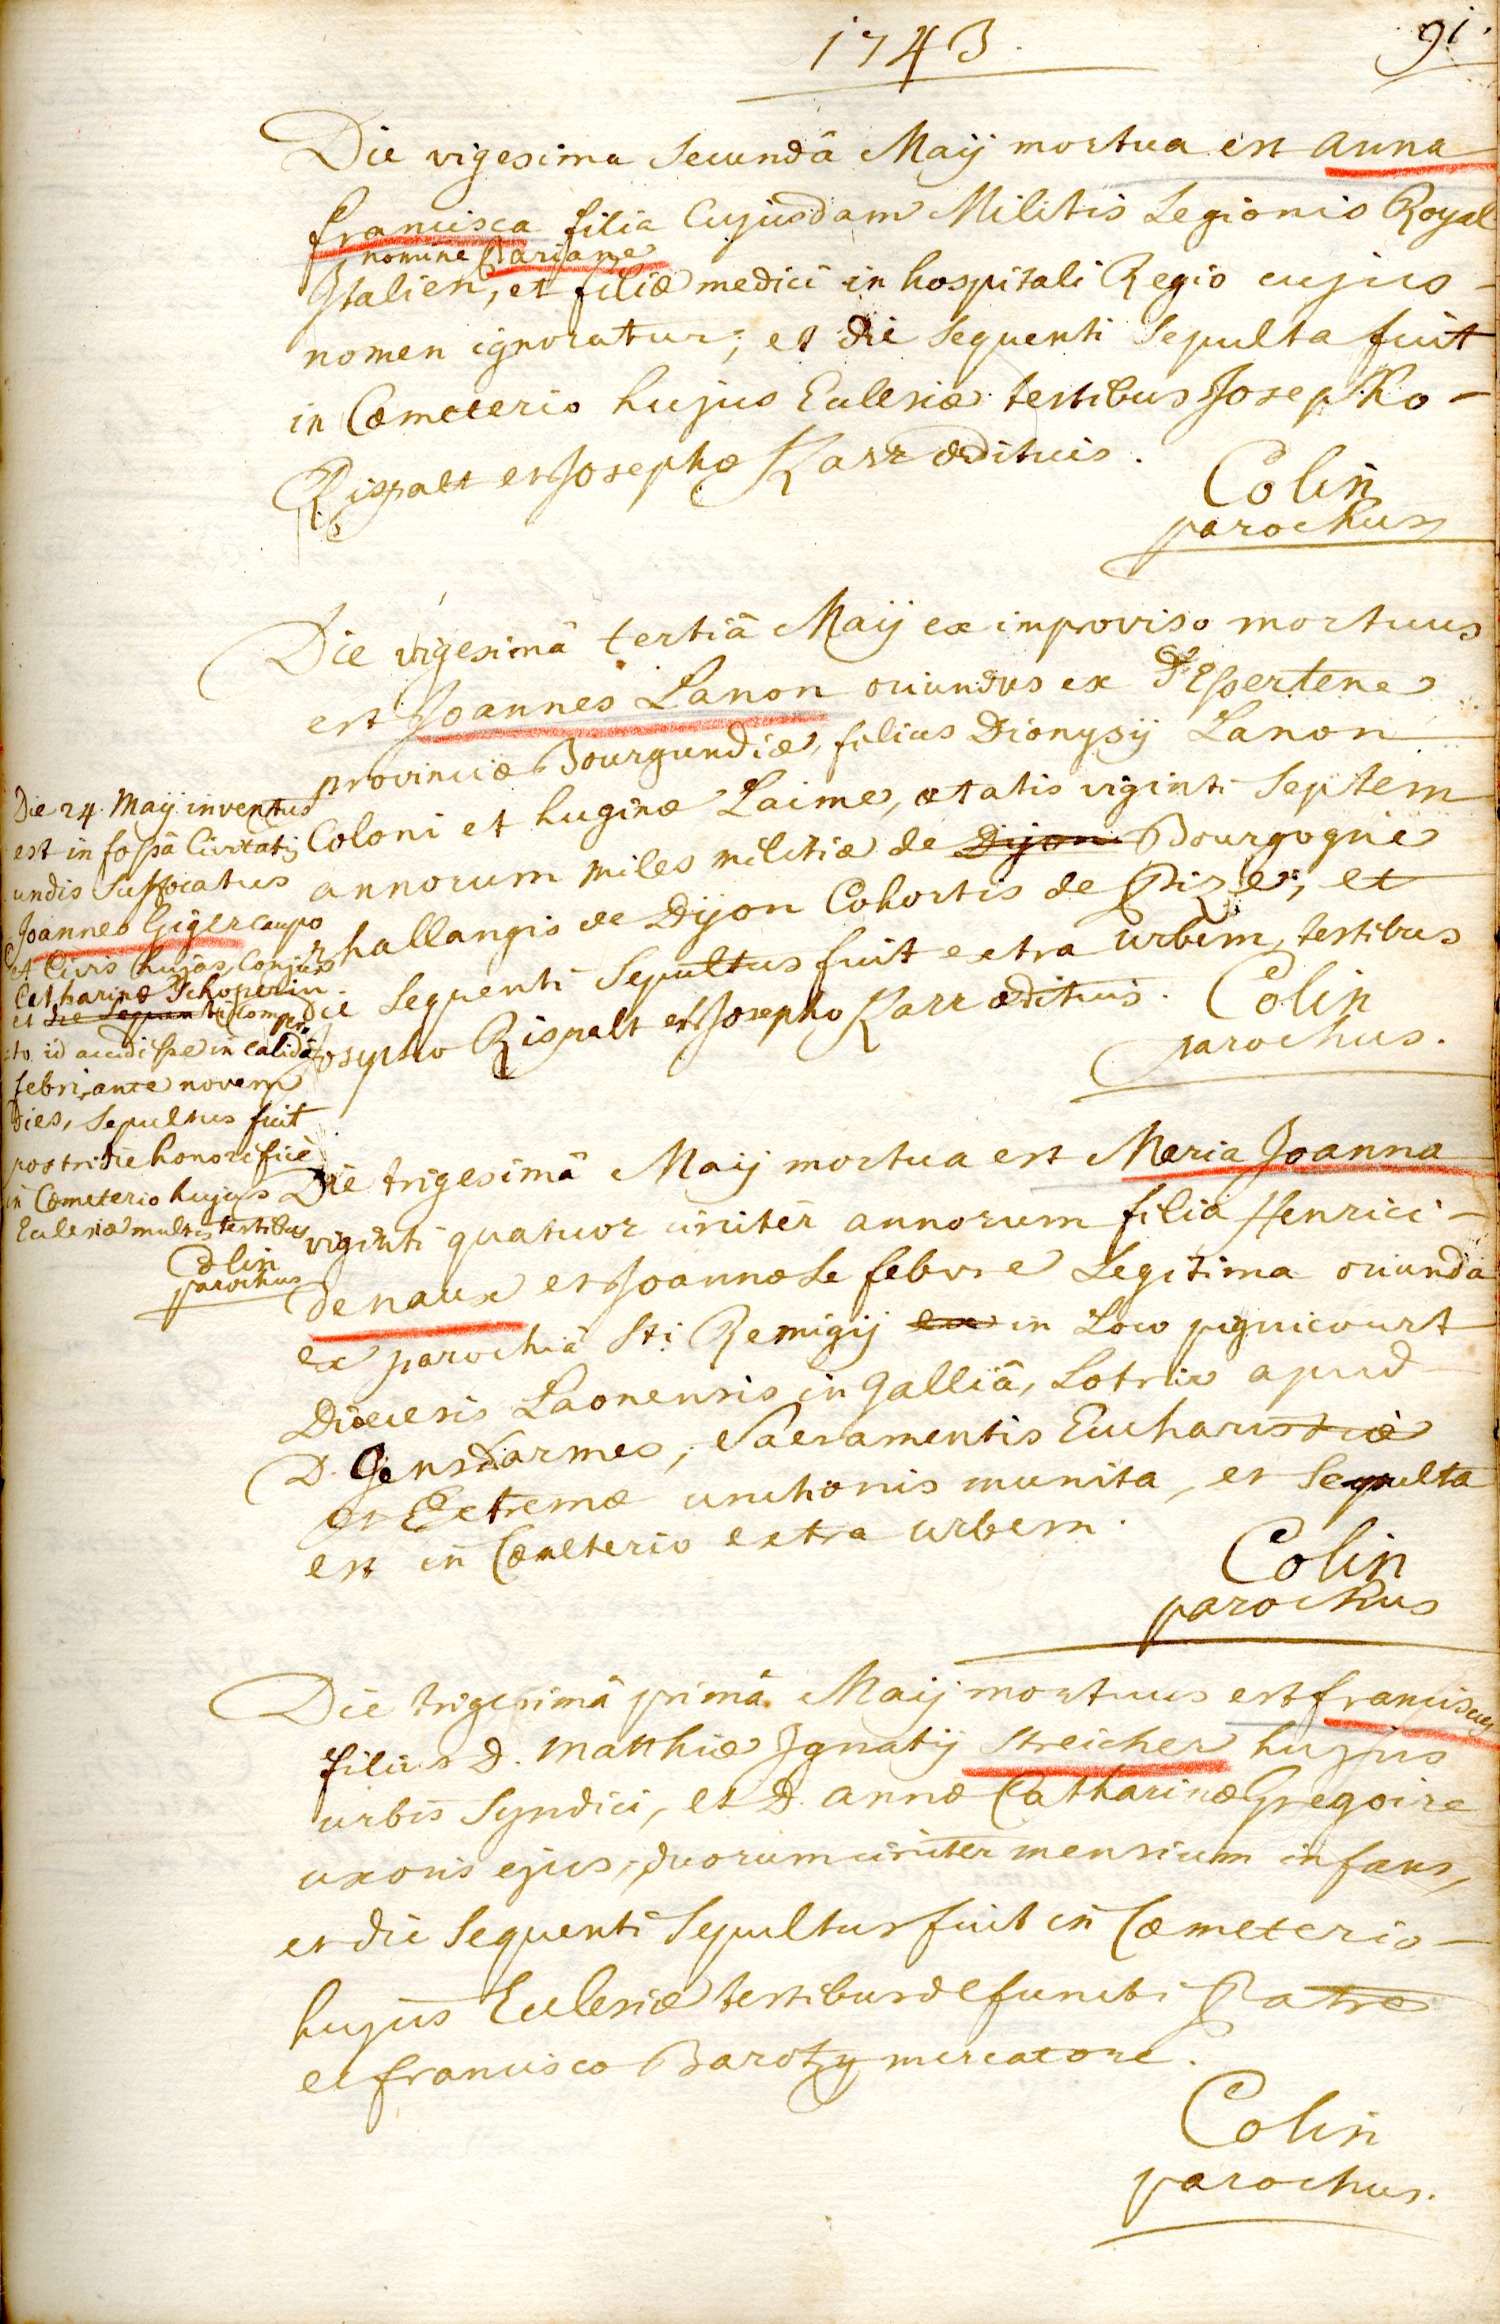 1743.
91.
Die vigesima Secundâ Maij mortua est anna
francisca filia Cujusdam Militis Legionis Royal
nomine Parisane
Italien, et filiæ medici in hospitali Regio cujus -
nomen ignoratur; et die sequenti Sepulta fuit
in Cœmeterio hujus Eclesiæ testibus Josepho -
Rispalt et Josepho Karr ædituis.
Colin
parochus
Die vigesimâ tertiâ Maij ex improviso mortuus
est Joannes Lanon oriundus ex d'Espertene
provinciæ Bourgundiæ, filius Dionysij Lanon
Coloni et huginæ Laime, ætatis viginti Septem
annorum miles militiæ de Dijon Bourgogne
phallangis de Dijon Cohortis de Pize, et
die Sequenti Sepultus fuit extra urbem, testibus
Josepho Rispalt et Josepho Karr ædituis.
Colin
parochus.
Die 24. Maij inventus
est in fossâ Civitatis
undis Suffocatus
Joannes Giger caupo
et Civis hujas, Conjux
Catharinæ Schoperin
et die Sequenti Comper
to id accidisse in calidâ
febri, ante novem
dies, Sepultus fuit
postridie honorifice
in Cœmeterio hujus
Eclesiæ multis testibus
Colin
parochus
Die trigesimâ Maij mortua est Maria Joanna
viginti quatuor circiter annorum filia Henrici -
Denaux et Joannæ Le febvre Legitima oriunda
ex parochiâ Sti Remigij ex in Loco pignicourt
Diœcesis Laonensis in Galliâ, Lotrix apud
D. Gensdarmes, Sacramentis Eucharistiæ
et Extremæ unctionis munita, et Sepulta
est in Cœmeterio extra urbem.
Colin
parochus
Die trigesimâ primâ Maij mortuus est franciscus
filius D. Matthiæ Ignatij Streicher hujus
urbis Syndici, et D. annæ Catharinæ Gregoire
uxoris ejus, duorum circiter mensium infans,
et die Sequenti Sepultus fuit in Cœmeterio -
hujus Eclesiæ testibus defuncti Patre
et francisco Barozzy mercatore.
Colin
parochus.